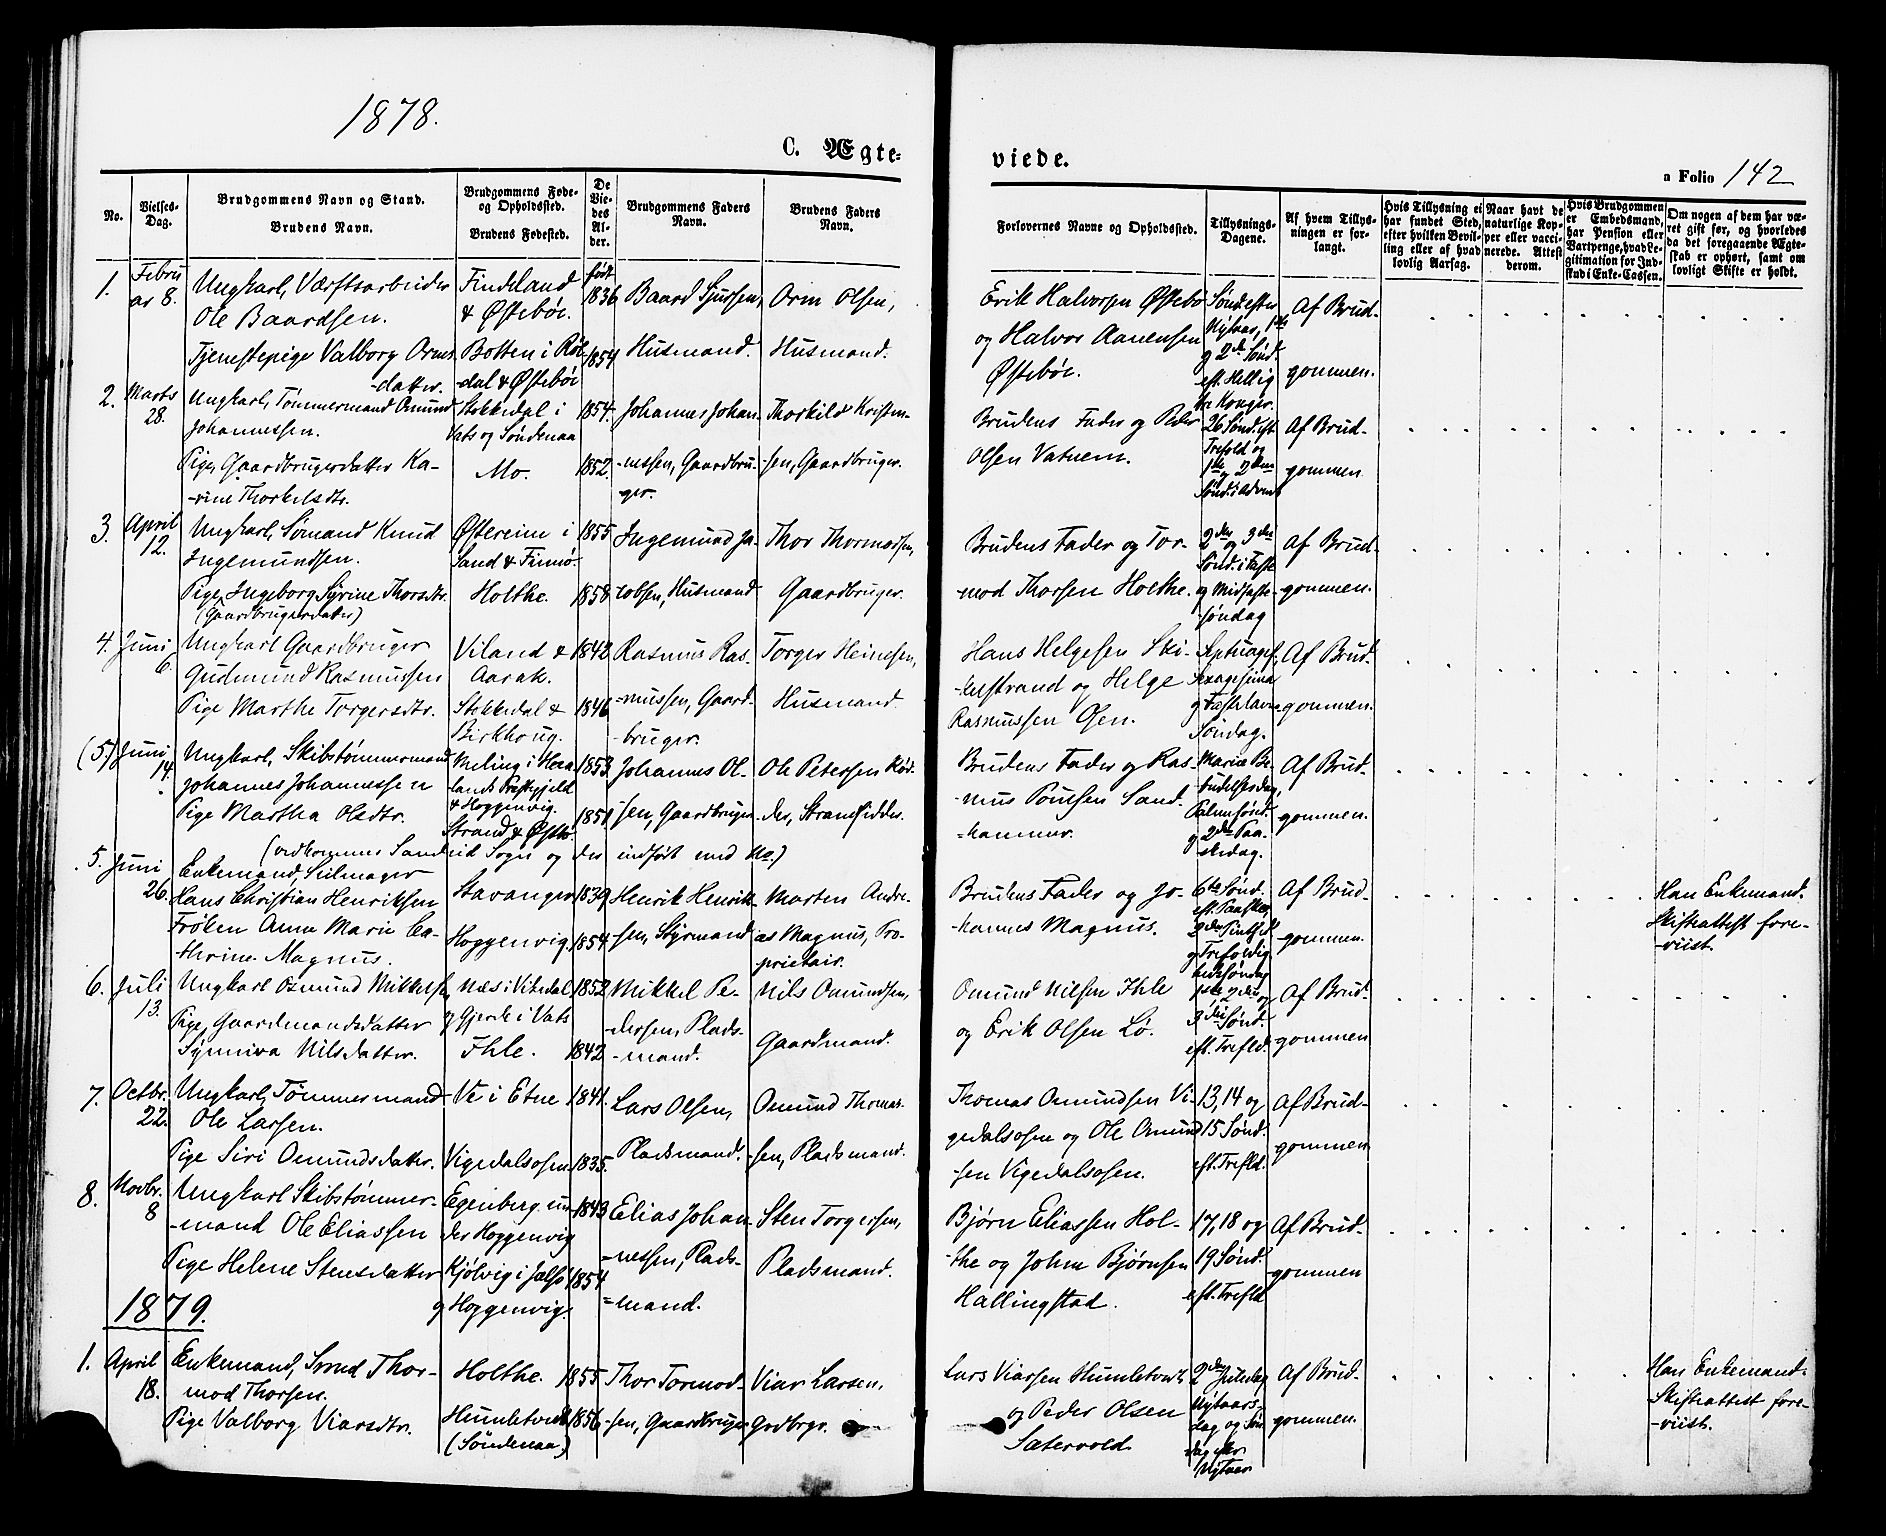 1878.
C. Ægte-
viede.
a Folio 142
No.
Vielses-
Dag.
Brudgommens Navn og Stand.
Brudens Navn.
Brudgommens Føde-
og Opholdssted.
Brudens Fødested.
De
Vie-
des
Al-
der.
Brudgommens Faders
Navn.
Brudens Faders
Navn.
Forlovernes Navne og Opholdssted.
Tillysnings-
Dagene.
Af hvem Tillys-
ningen er for-
langt.
Hvis Tillysning ei
har fundet Sted,
efter hvilken Bevil-
ling eller af hvad
lovlig Aarsag.
Naar havt de
naturlige Kop-
per eller vacci-
nerede. Attest
derom.
Hvis Brudgommen
er Embedsmand,
har Pension eller
Vartpenge, hvad Le-
gitimation for Ind-
skud i Enke-Cassen.
Om nogen af dem har væ-
ret gift før, og hvorledes
da det foregaaende Ægte-
skab er ophørt, samt om
lovligt Skifte er holdt.
1.
Febru
ar 8.
Ungkarl, Værftsarbeider
Ole Baardsen.
Tjenestepige Valborg Orms-
-datter.
Findeland
& Østebøe.
Botten i Røl-
-dal & Østebøe
født
1836
1854
Baard Sjursen,
Husmand.
Orm Olsen,
Husmand.
Erik Halvorsen Østebø
og Halvor Aanensen
Østebøe.
Sønd. efter
Nytaar, 1ste
og 2den Sønd.
eft. Hellig
tre Konger.
Af Brud-
gommen.
2.
Marts
28.
Ungkarl, Tømmermand Omund
Johannessen.
Pige, Gaardbrugerdatter Ka-
-rine Thorkelsdtr.
Stokkedal i
Vats og Søndenaa
Mo.
1854.
1852.
Johannes Johan-
-nessen, Gaardbru-
ger.
Thorkild Kristen-
-sen, Gaardbruger.
Brudens Fader og Peder
Olsen Vatnem.
26 Sønd. eft.
Trefold og
1ste og 2den
Sønd. i Advent
Af Brud-
gommen
3.
April
12.
Ungkarl, Sømand Knud
Ingemundsen.
Pige, Ingeborg Syrine Thorsdtr.
(Gaardbrugerdatter)
Østereim i
Sand & Finnø.
Holthe.
1855
1858
Ingemund Ja-
cobsen, Husmand
Thor Thormodsen,
Gaardbruger.
Brudens Fader og Tor-
mod Thorsen Holthe.
2den og 3die
Sønd. i Faste
og Midfaste-
søndag
Af Brud-
gommen.
4.
Juni
6.
Ungkarl Gaardbruger
Gudmund Rasmussen
Pige Marthe Torgersdtr.
Viland &
Aarak.
Stokkedal &
Birkhoug.
1842
1846
Rasmus Ras-
-mussen, Gaard-
-bruger.
Torger Heinesen,
Husmand.
Hans Helgesen Ski-
-kelstrand og Helge
Rasmussen Osen.
Septuages.
Sexagesima
og Fastelavns-
Søndag.
Af Brud-
gommen.
(5)
Juni
14.
Ungkarl, Skibstømmermand
Johannes Johannessen
Pige Martha Olsdtr.
Meling i Hera
lands Præstegjeld
& Hoggenvig.
Strand & Østbø
1853
1851
Johannes Ol-
-sen, Gaardbruger
Ole Petersen Rød-
-der, Strandsidder.
Brudens Fader og Ras-
-mus Poulsen Sand-
-hammer.
Mariæ Be-
budelsesdag,
Palmesønd.
og 2den Paa-
skedag.
Af Brud-
gommen.
(vedkommer Sandeid Sogn og der indført med No.)
5.
Juni
26.
Enkemand, Seilmager
Hans Christian Henriksen
Frøken Anna Marie Ca-
thrine Magnus.
Stavanger
Hoggenvig.
1839
1854
Henrik Henrik-
sen, Styrmand
Morten Andre-
as Magnus, Pro-
prietair.
Brudens Fader og Jo-
-hannes Magnus.
6te Sønd.
eft. Paaske,
2den Pintsed.
og Trefoldig
hedssøndag
Af Brud-
gommen.
Han Enkemand.
Skifteattest fore-
-viist.
6.
Juli
13.
Ungkarl Osmund Mikkelsen
Pige, Gaardmandsdatter
Synniva Nilsdatter.
Næs i Vikedal
og Gjerde i Vats
Ihle.
1852
1842
Mikkel Pe-
-dersen, Plads-
-mand.
Nils Omundsen,
Gaardmand.
Omund Nilsen Ihle
og Erik Olsen Lø.
1ste, 2den og
3die Sønd.
eft. Trefld.
Af Brud-
gommen
7.
Octbr.
22.
Ungkarl, Tømmermand
Ole Larsen.
Pige Siri Omundsdatter.
Ve i Etne
Vigedalsosen
1841.
1835.
Lars Olsen,
Pladsmand.
Omund Thomas-
-sen, Pladsmand.
Thomas Omundsen Vi-
gedalsosen og Ole Omund-
sen Vigedalsosen.
13, 14 og
15 Sønd.
eft. Trefld.
Af Brud-
gommen
8.
Novbr.
8
Ungkarl Skibstømmer-
-mand Ole Eliassen
Pige Helene Stensdatter
Egenberg un-
der Hoggenvig
Kjølvig i Jælsø
og Hoggenvig.
1843
1854
Elias Johan-
-nessen, Plads-
=mand.
Sten Torgersen,
Pladsmand.
Bjørn Eliassen Hol-
-the og John Bjørnsen
Hallingstad.
17, 18 og
19 Sønd.
eft. Trefld
Af Brud-
gommen
1879.
1.
April
18.
Enkemand, Smed Thor-
mod Thorsen.
Pige Valborg Viarsdtr.
Holthe.
Humletvedt
(Søndenaa)
1855
1856
Thor Tormod-
-sen, Gaardbruger
Viar Larsen,
Grdbrgr.
Lars Viarsen Humletvedt
og Peder Olsen
Sætervold.
2den Juledag
Nytaars-
dag og Søn
dag efter
Nytaar
Af Brud-
gommen.
Han Enkemand.
Skifteattest fore-
-viist.